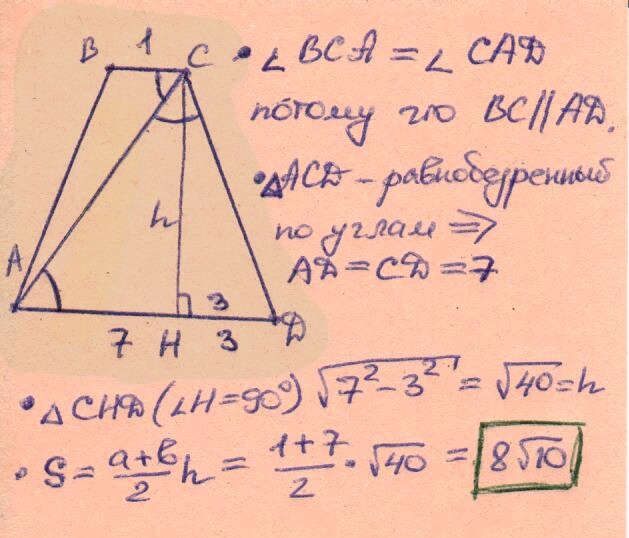 B 1 C
• ∠ BCA = ∠ CAD
потому что BC || AD.
• △ACD – равнобедренный
по углам ⇒
AD = CD = 7
h
A
3
7 H 3 D
• △ CHD (∠H = 90°) √(7² – 3²) = √40 = h
• S = (a+b)/2 h = (1+7)/2 · √40 = 8√10